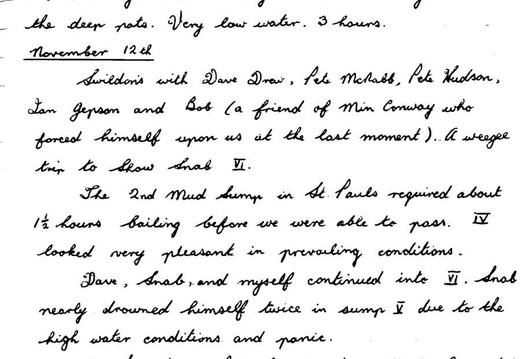 the deep pots. Very low water. 3 hours.
November 12th
Swildons with Dave Drew, Pete McNabb, Pete Hudson,
Ian Jepson and Bob (a friend of Min Conway who
forced himself upon us at the last moment). A weegee
trip to show Snab VI.
The 2nd Mud Sump in St. Pauls required about
1½ hours bailing before we were able to pass. IV
looked very pleasant in prevailing conditions.
Dave, Snab, and myself continued into VI. Snab
nearly drowned himself twice in sump V due to the
high water conditions and panic.